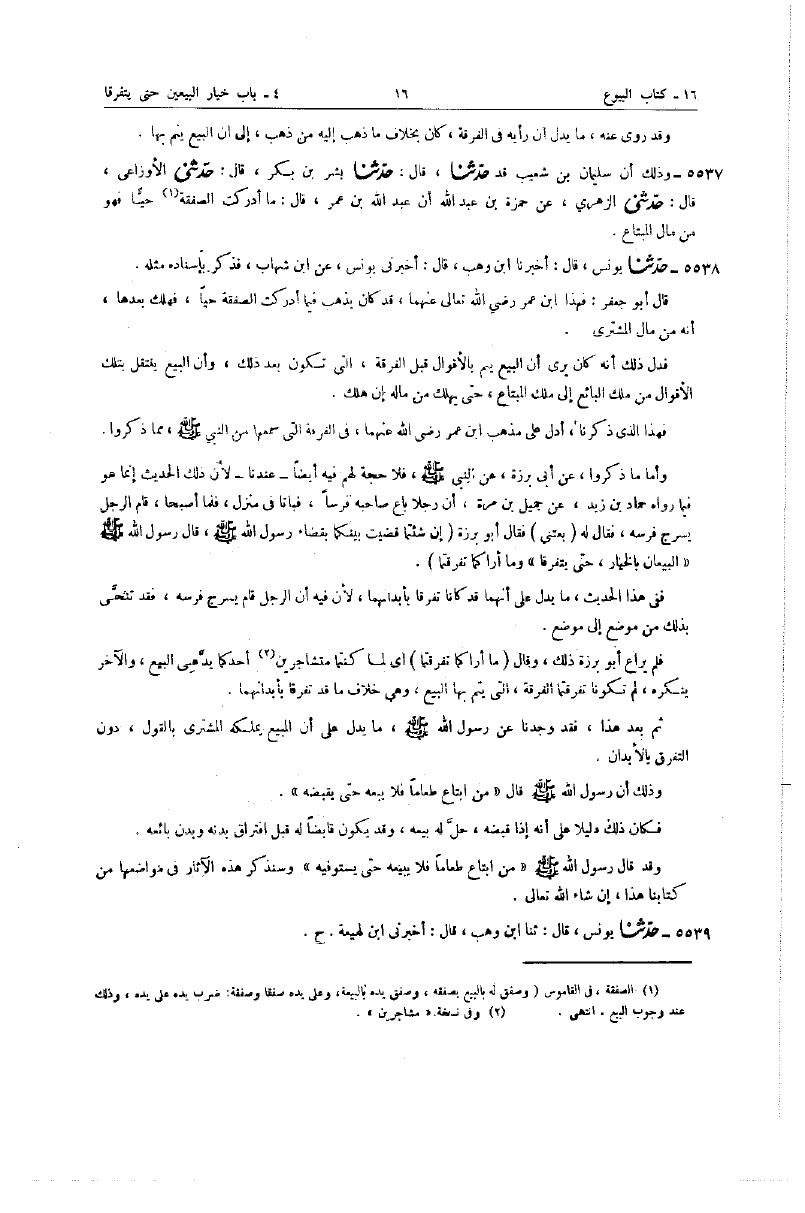 ١٦ ـ كتاب البيوع ١٦ ٤ ـ باب خيار البيعين حتى يتفرقا
وقد روى عنه ، ما يدل أن رأيه فى الفرقة ، كان بخلاف ما ذهب إليه من ذهب ، إلى أن البيع يتم بها .
٥٥٣٧ ـ وذلك أن سليمان بن شعيب قد حدثنا ، قال : حدثنا بشر بن بكر ، قال : حدثنى الأوزاعى ،
قال : حدثنى الزهري ، عن حمزة بن عبد الله أن عبد الله بن عمر ، قال : ما أدركت الصفقة(١) حيًّا فهو
من مال المبتاع .
٥٥٣٨ ـ حدثنا يونس ، قال : أخبرنا ابن وهب ، قال : أخبرنى يونس ، عن ابن شهاب ، فذكر بإسناده مثله .
قال أبو جعفر : فهذا ابن عمر رضي الله تعالى عنهما ، قد كان يذهب فيما أدركت الصفقة حياً ، فهلك بعدها ،
أنه من مال المشترى .
فدل ذلك أنه كان يرى أن البيع يتم بالأقوال قبل الفرقة ، التى تكون بعد ذلك ، وأن المبيع ينتقل بتلك
الأقوال من ملك البائع إلى ملك المبتاع ، حتى يهلك من ماله إن هلك .
فهذا الذى ذكرنا ، أدل على مذهب ابن عمر رضي الله عنهما ، فى الفرقة التى سمعها من النبي ﷺ ، مما ذكروا .
وأما ما ذكروا ، عن أبى برزة ، عن النبي ﷺ ، فلا حجة لهم فيه أيضاً ــ عندنا ــ لأن ذلك الحديث إنما هو
فيما رواه حماد بن زيد ، عن جميل بن مرة ، أن رجلا باع صاحبه فرساً ، فباتا فى منزل ، فلما أصبحا ، قام الرجل
يسرج فرسه ، فقال له ( بعتنى ) فقال أبو برزة ( إن شئتما قضيت بينكما بقضاء رسول الله ﷺ ، قال رسول الله ﷺ
« البيعان بالخيار ، حتى يتفرقا » وما أراكما تفرقتما ) .
ففى هذا الحديث ، ما يدل على أنهما قد كانا تفرقا بأبدانهما ، لأن فيه أن الرجل قام يسرج فرسه ، فقد تنحَّى
بذلك من موضع إلى موضع .
فلم يراع أبو برزة ذلك ، وقال ( ما أراكما تفرقتما ) أى لما كنتما متشاجرين(٢) أحدكما يدَّعى البيع ، والآخر
ينكره ، لم تكونا تفرقتما الفرقة ، التى يتم بها البيع ، وهي خلاف ما قد تفرقا بأبدانهما .
ثم بعد هذا ، فقد وجدنا عن رسول الله ﷺ ، ما يدل على أن المبيع يملكه المشترى بالقول ، دون
التفرق بالأبدان .
وذلك أن رسول الله ﷺ قال « من ابتاع طعاماً فلا يبعه حتى يقبضه » .
فكان ذلك دليلا على أنه إذا قبضه ، حلَّ له بيعه ، وقد يكون قابضاً له قبل افتراق بدنه وبدن بائعه .
وقد قال رسول الله ﷺ « من ابتاع طعاماً فلا يبيعه حتى يستوفيه » وسنذكر هذه الآثار فى مواضعها من
كتابنا هذا ، إن شاء الله تعالى .
٥٥٣٩ ـ حدثنا يونس ، قال : ثنا ابن وهب ، قال : أخبرنى ابن لهيعة . ح .
(١) الصفقة ، فى القاموس ( وصفق له بالبيع بصفقه ، وصفق يده بالبيعة، وعلى يده صفقا وصفقة: ضرب يده على يده ، وذلك
عند وجوب البيع . انتهى . (٢) وفى نسخة « مشاجرين » .